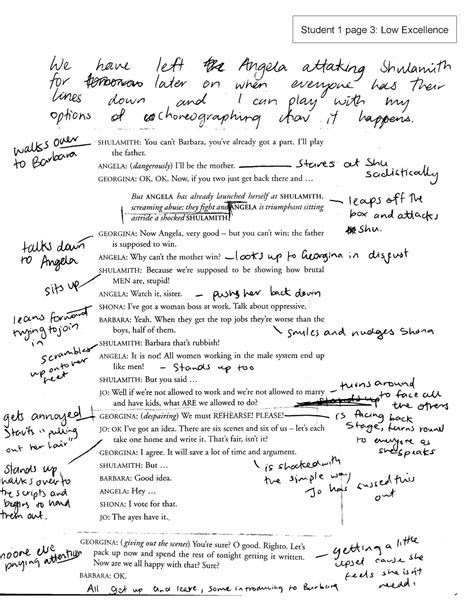 Student 1 page 3: Low Excellence
We have left Angela attaking Shulamith
for later on when everyone has their
lines down and I can play with my
options of choreographing how it happens.
walks over
to Barbara
SHULAMITH: You can't Barbara, you've already got a part. I'll play
the father.
ANGELA: (dangerously) I'll be the mother.
Stares at Shu
sadistically
GEORGINA: OK. OK. Now, if you two just get back there and ...
But ANGELA has already launched herself at SHULAMITH,
screaming abuse; they fight and ANGELA is triumphant sitting
astride a shocked SHULAMITH.
leaps off the
box and attacks
Shu.
talks down
to Angela
GEORGINA: Now Angela, very good – but you can't win; the father
is supposed to win.
ANGELA: Why can't the mother win?
looks up to Georgina in disgust
sits up
SHULAMITH: Because we're supposed to be showing how brutal
MEN are, stupid!
ANGELA: Watch it, sister.
- pushes her back down
leans forward
trying to join
in
SHONA: I've got a woman boss at work. Talk about oppressive.
BARBARA: Yeah. When they get the top jobs they're worse than the
boys, half of them.
smiles and nudges Shona
scrambles
up onto her
feet
SHULAMITH: Barbara that's rubbish!
ANGELA: It is not! All women working in the male system end up
like men!
- Stands up too
SHULAMITH: But you said ...
JO: Well if we're not allowed to work and we're not allowed to marry
and have kids, what ARE we allowed to do?
- turns around
to face all
the others
gets annoyed
Starts "pulling
out her hair"
GEORGINA: (despairing) We must REHEARSE! PLEASE!
is facing back
Stage, turns round
to everyone as
she speaks
Stands up
walks over to
the scripts and
begins to hand
them out.
JO: OK I've got an idea. There are six scenes and six of us – let's each
take one home and write it. That's fair, isn't it?
GEORGINA: I agree. It will save a lot of time and argument.
SHULAMITH: But ...
is shocked with
the simple way
Jo has sussed this
out
BARBARA: Good idea.
ANGELA: Hey ...
SHONA: I vote for that.
JO: The ayes have it.
noone else
paying attention
GEORGINA: (giving out the scenes) You're sure? O good. Righto. Let's
pack up now and spend the rest of tonight getting it written.
Now are we all happy with that? Sure?
- getting a little
upset cause she
feels she isn't
BARBARA: OK.
All get up and leave, some introducing to Barbara